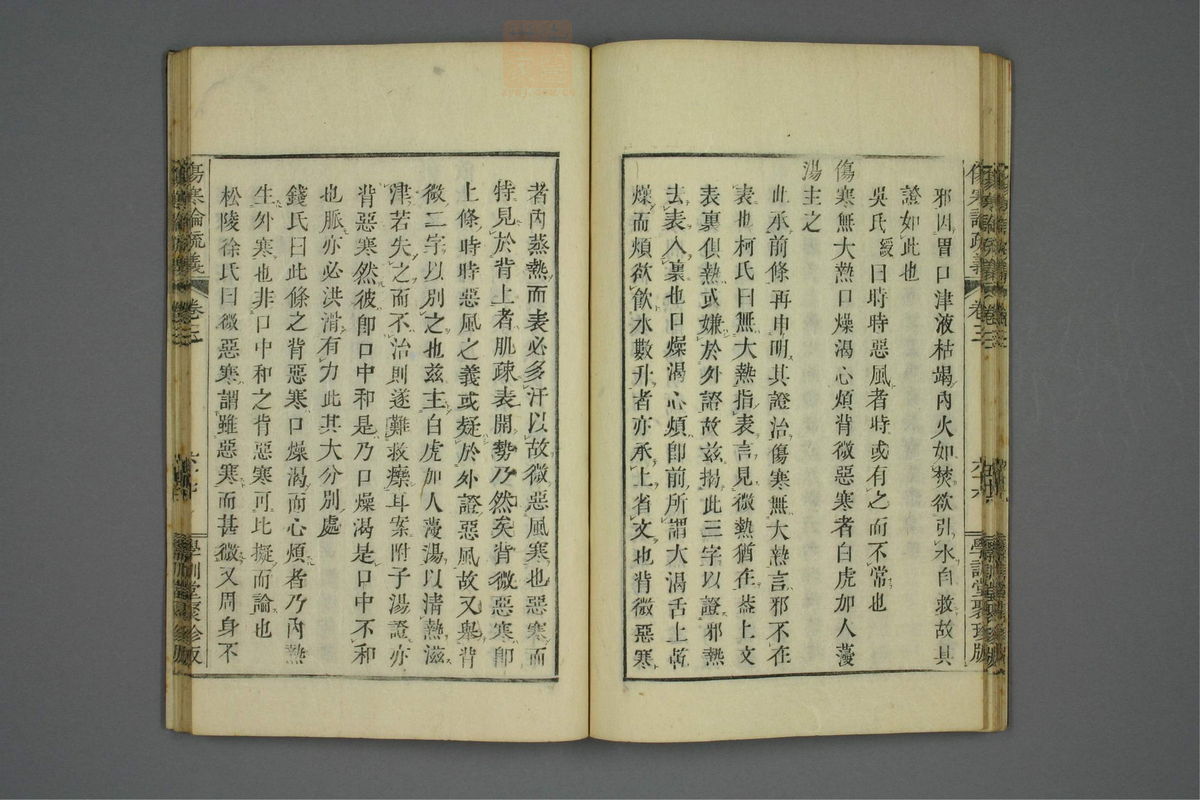 邪因胃口津液枯竭內火如焚欲引水自救故其
證如此也
吳氏緩曰時時惡風者時或有之而不常也
傷寒無大熱口燥渴心煩背微惡寒者白虎加人薓
湯主之
此承前條再申明其證治傷寒無大熱言邪不在
表也柯氏曰無大熱指表言見微熱猶在蓋上文
表裏俱熱或嫌於外證故茲揭此三字以證邪熱
去表入裏也口燥渴心煩卽前所謂大渴舌上乾
燥而煩欲飲水數升者亦承上省文也背微惡寒
者內蒸熱而表必多汗以故微惡風寒也惡寒而
特見於背上者肌疎表開勢乃然矣背微惡寒卽
上條時時惡風之義或疑於外證惡風故又舉背
微二字以別之也茲主白虎加人薓湯以清熱滋
津若失之而不治則遂難救療耳案附子湯證亦
背惡寒然彼卽口中和是乃口燥渴是口中不和
也脈亦必洪滑有力此其大分別處
錢氏曰此條之背惡寒口燥渴而心煩者乃內熱
生外寒也非口中和之背惡寒可比擬而論也
松陵徐氏曰微惡寒謂雖惡寒而甚微又周身不
傷寒論疏義
卷三
學訓堂聚珍版